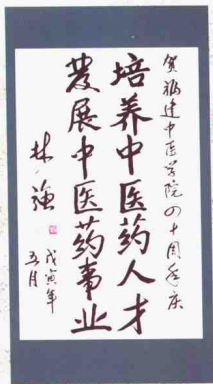 贺福建中医学院四十周年庆
培养中医药人才
发展中医药事业
林强
戊寅年
五月